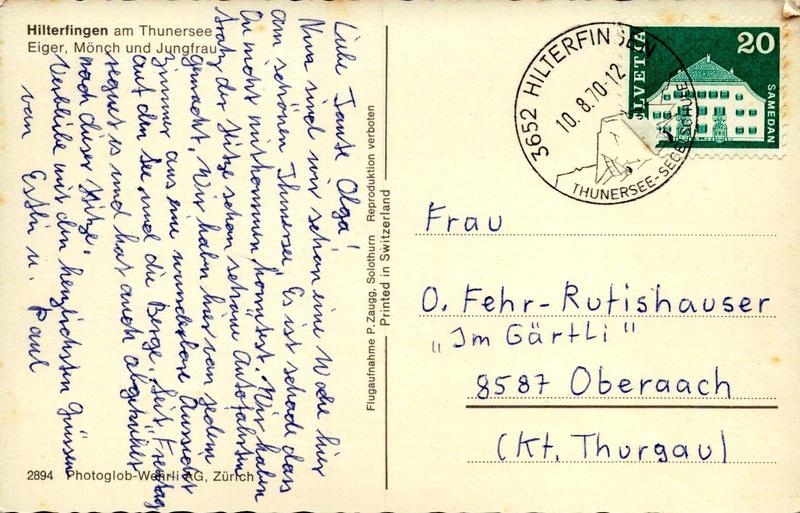 Hilterfingen am Thunersee
Eiger, Mönch und Jungfrau
Liebe Tante Olga!
Nun sind wir schon eine Woche hier
am schönen Thunersee. Es ist schade dass
Du nicht mitkommen konntest. Wir haben
trotz der Hitze schon schöne Autofahrten
gemacht. Wir haben hier von jedem
Zimmer aus eine wunderbare Aussicht
auf den See und die Berge. Seit Freitag
regnet es und hat auch abgekühlt
nach dieser Hitze.
Verbleibe mit den herzlichsten Grüssen
von Esthi u. Paul
2894 Photoglob-Wehrli AG, Zürich
Flugaufnahme P. Zaugg, Solothurn Reproduktion verboten
Printed in Switzerland
3652 HILTERFINGEN
10.8.70-12
THUNERSEE-SEGELSCHULE
HELVETIA
20
SAMEDAN
Frau
O. Fehr-Rutishauser
„Im Gärtli"
8587 Oberaach
(Kt. Thurgau)